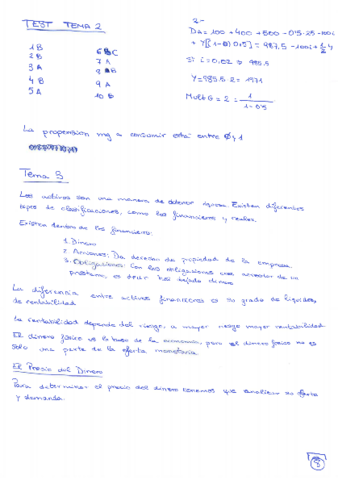 TEST TEMA 2
1 B
2 B
3 A
4 B
5 A
6 B C
7 A
8 B
9 A
10 B
2-
DA = 100 + 400 + 500 - 0'5·25 - 100i
+ Y[(1-0) 0'5] = 987,5 - 100i + 1/2 Y
Si i = 0.02 → 985.5
Y = 985.5 · 2 = 1971
Mult G = 2 = 1 / 1 - 0'5
La propensión mg a consumir está entre 0 y 1
Tema 3
Los activos son una manera de obtener Existen diferentes
tipos de clasificaciones, como los financieros y reales.
Existen dentro de los financieros:
1. Dinero
2. Acciones: Da derecho de propiedad de la empresa
3. Obligaciones: Con las obligaciones eres acreedor de un
préstamo, es decir has dejado dinero
La diferencia entre activos financieros es su grado de liquidez,
de rentabilidad
La rentabilidad depende del riesgo, a mayor riesgo mayor rentabilidad.
El dinero físico es la base de la economía, pero el dinero físico no es
sólo una parte de la oferta monetaria.
El Precio del Dinero
Para determinar el precio del dinero tenemos que analizar su oferta
y demanda.
8